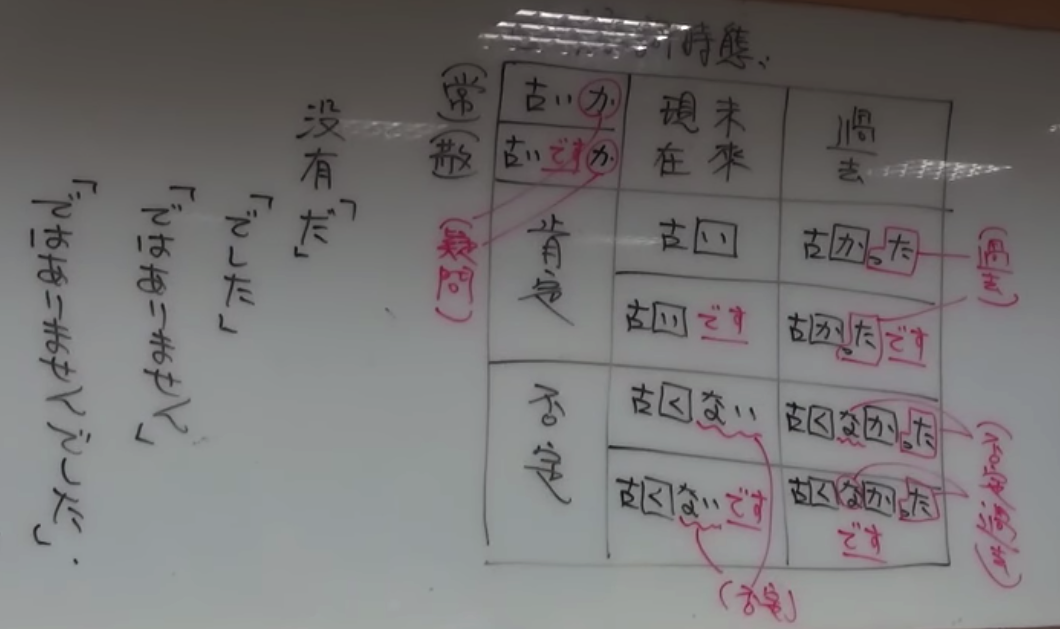 時態、
(常) 古いか 現在 未來 過去
(敬) 古いですか
肯定 古い 古かった (過去)
古いです 古かったです
否定 古くない 古くなかった (否定過去)
古くないです 古くなかった
です
(疑問)
(否定)
没有「だ」
「でした」
「ではありません」
「ではありませんでした」.